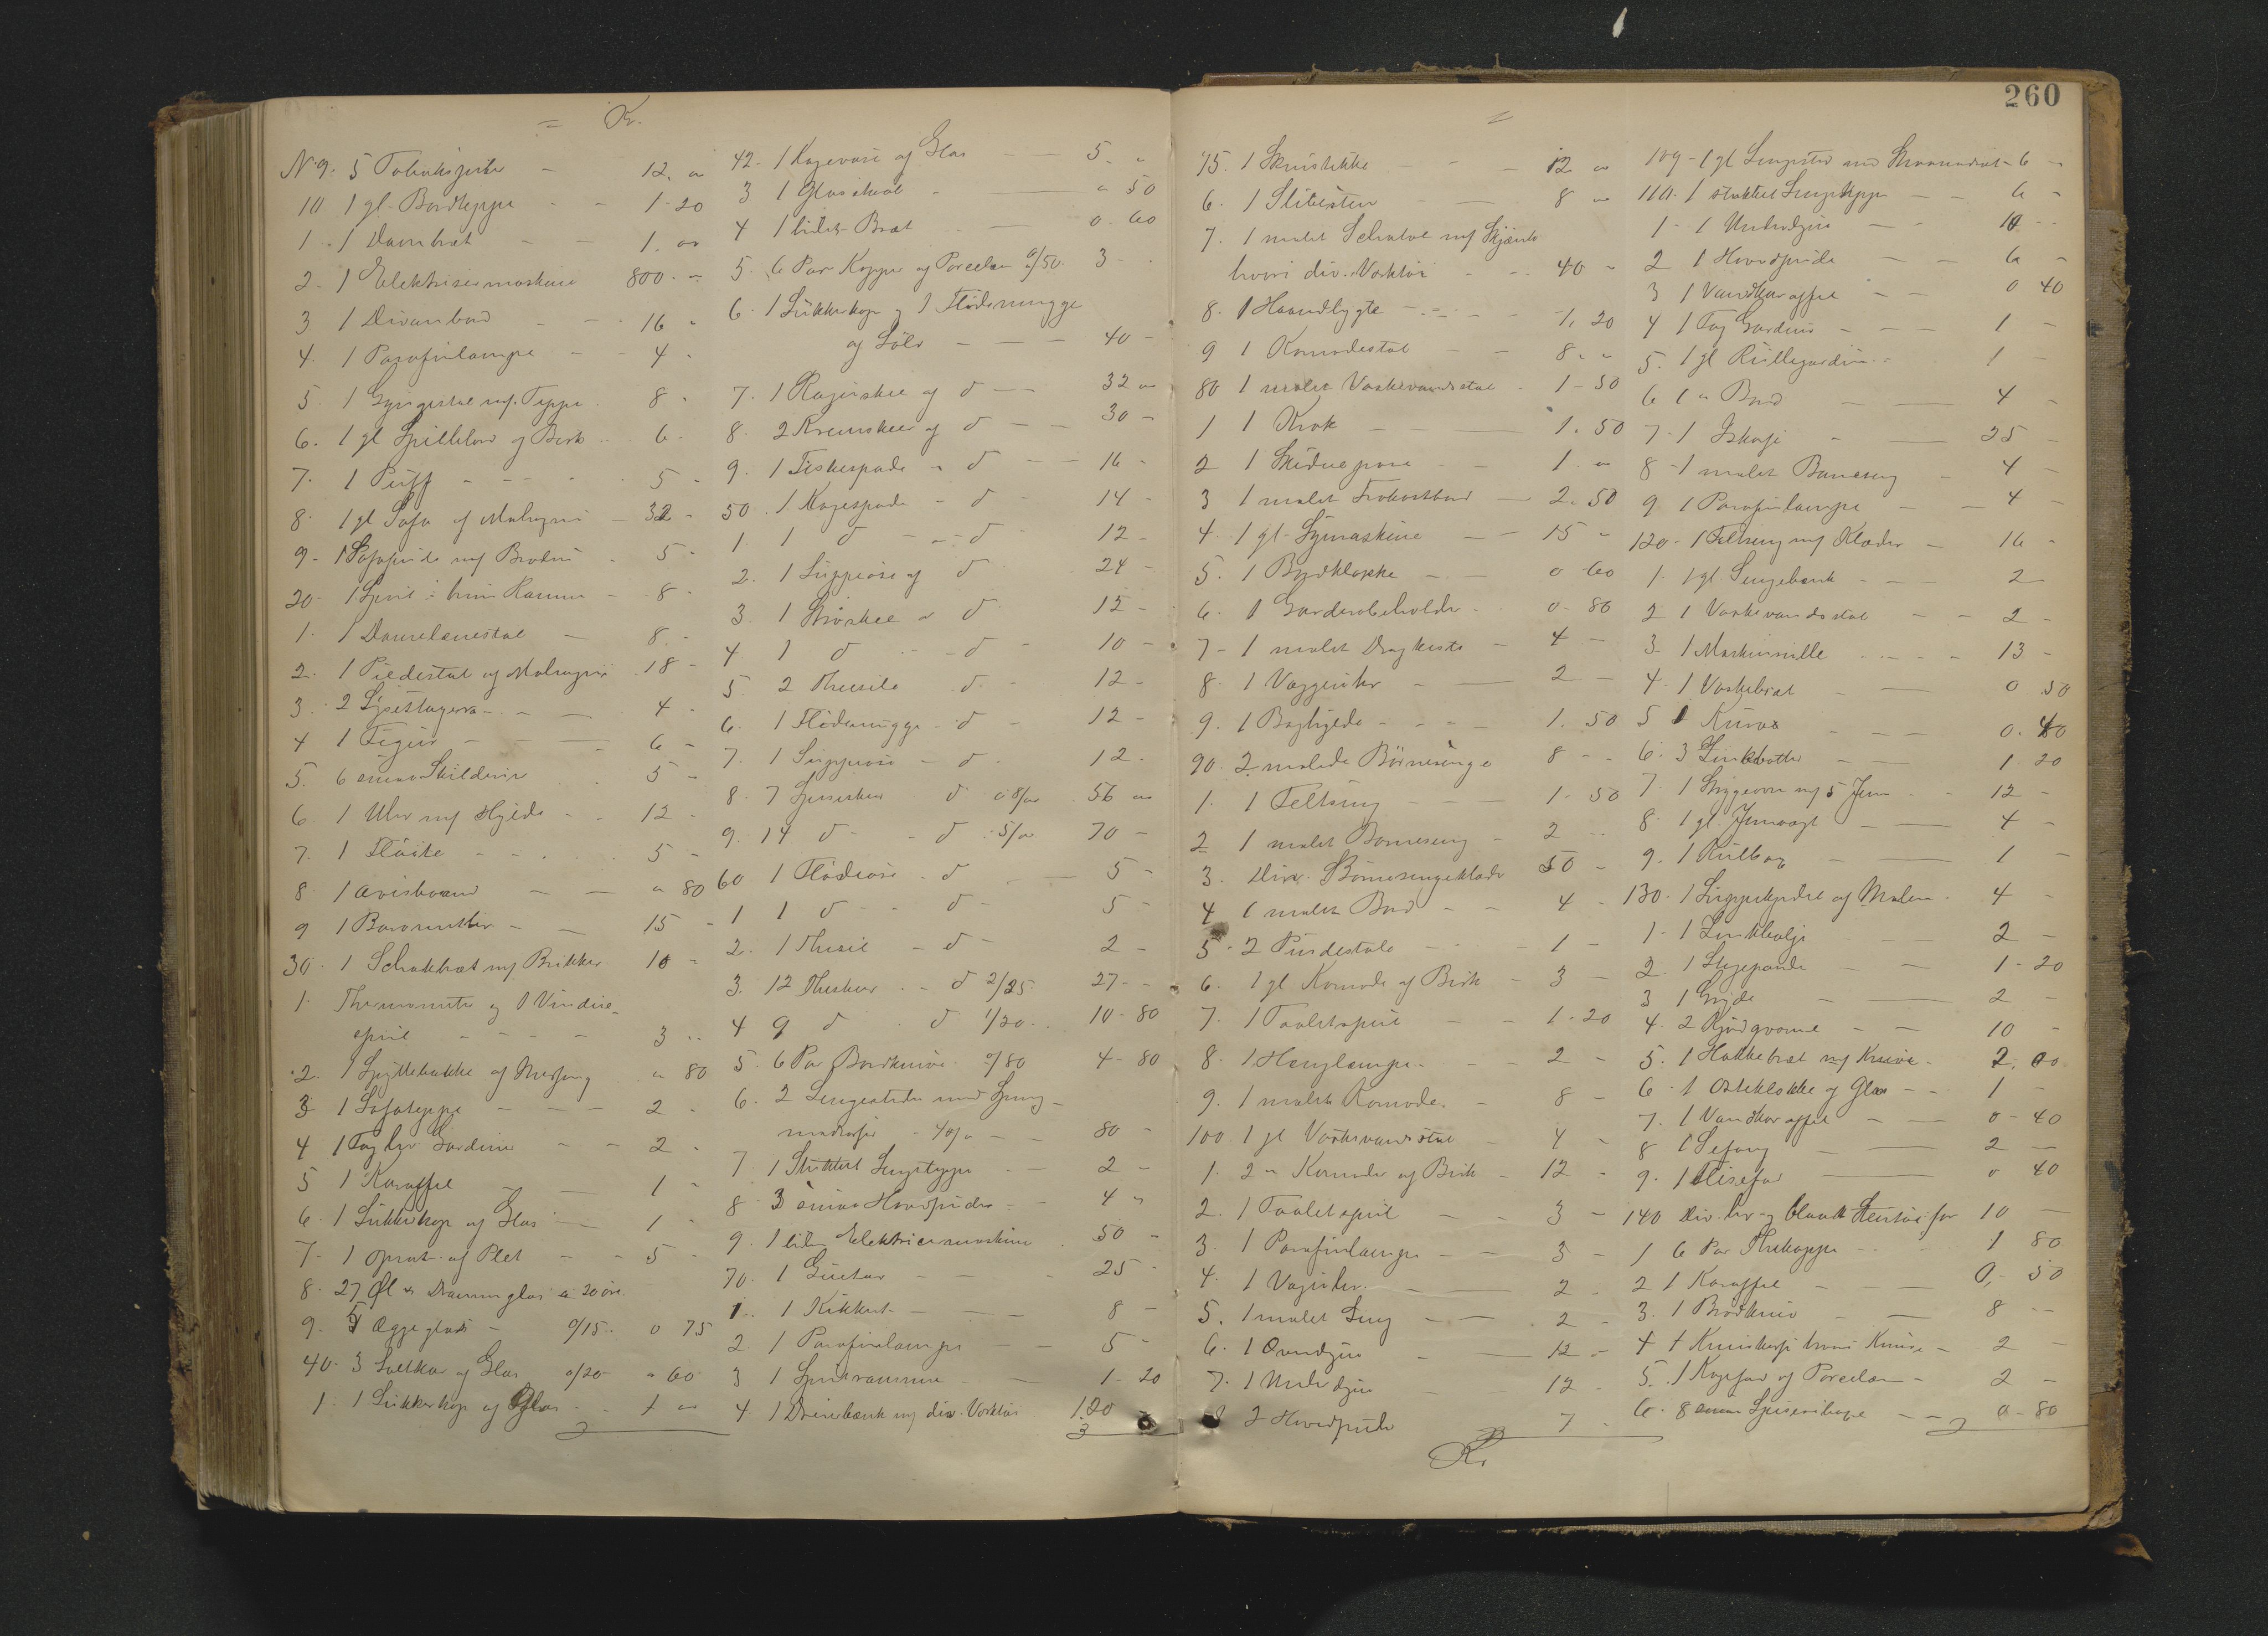 Kr.
N 9. 5 Tobakspiber - 12. "
10 1 gl. Bordteppe - - 1-20
1. 1 Dambræt - - 1. "
2. 1 Elektrisermaskine 800. -
3 1 Divanbord - - 16 "
4. 1 Parafinlampe - - 4 -
5. 1 Gyngestol m/. Teppe 8 -
6. 1 gl Spillebord af Birk - 6 -
7. 1 Puff - - - 5 -
8. 1 gl Sofa af Mahogni - 32 -
9 - 1 Sofapude m/ Broderi - 5 -
20. 1 Speil i brun Ramme - 8 -
1. 1 Damelænestol - 8. -
2. 1 Piedestal af Mahogni 18 -
3. 2 Lysestager - - 4 -
4 1 Figur - - 6 -
5. 6 smaa Skilderier 5 -
6. 1 Uhr m/ Hylde - - 12 -
7. 1 Fløite - - 5 -
8 1 Avisbaand - - " 80
9 1 Barometer - - 15 -
30. 1 Schakbræt m/ Brikker 10 -
1. Thermometer og 1 Vindues-
speil - - - 3 -
2. 1 Spyttebakke af Messing " 80
3 1 Sofateppe - - - 2 -
4 1 Fag hv Gardiner - - 2 -
5 1 Karaffel - - 1 -
6. 1 Sukkerkop af Glas - 1 -
7. 1 Opsats af Plet - - 5 -
8. 27 Øl & Dramglas a 20 øre
9. 5 Æggeglas - a/15. 0 75
40. 3 Saltkar af Glas a/20 " 60
1. 1 Sukkerkop af Glas - 1 "
42. 1 Kagevase af Glas - - 5. "
3 1 Glasskaal - - " 50
4 1 lidet Bræt - - 0. 60
5. 6 Par Kopper af Porcelæn a/50. 3 - -
6. 1 Sukkerkop og 1 Flødemugge
af Sølv - - - 40 -
7. 1 Kageskee af d - - 32 "
8. 2 Kremskeer af d - - 30 -
9. 1 Fiskespade - d - - 16 -
50. 1 Kagespade - d - 14 -
1. 1 d - - d 12 -
2. 1 Suppeøse af d 24 -
3. 1 Strøskee " d 12 -
4 1 d - - d - 10 -
5. 2 Thesile d - 12 -
6. 1 Flødemugge - d - 12 -
7. 1 Suppeøse - d - 12 -
8. 7 Spiseskeer d a 8/" 56 "
9. 14 d - - d - 5/" 70 -
60 1 Flødeøse - d - 5 -
1 1 d - - d - 5 -
2. 1 Thesil - d - 2 -
3. 12 Theskeer - - d 2/25 27 - -
4 9 d d 1/20 - 10 - 80
5. 6 Par Bordknive a/80 4 - 80
6. 2 Sengesteder med Spring-
madrasser - 40/" - - 80 -
7 1 Stukket Sengeteppe - - 2 -
8. 3 smaa Hovedpuder - 4 "
9. 1 liden Elektrisermaskine 50 -
70. 1 Guitar - - - 25 -
1. 1 Kikkert - - - 8 -
2 1 Parafinlampe - - 5 -
3 1 Speilramme - - 1 - 20
4. 1 Dreiebænk m/ div. Værktøi 120
260
75. 1 Skruestikke - - 12 "
6. 1 Slibesten - - 8 "
7. 1 malet Schatol m/ Skjænk
hvori div. Værktøi - - 40 -
8. 1 Haandlygte - - - 1. 20
9 1 Komodestol - - 8. "
80 1 malet Vaskevandsstol - 1 - 50
1 1 Krak - - - 1. 50
2 1 Skidnepose - 1. "
3 1 malet Frokostbord - 2. 50
4. 1 gl. Symaskine - - 15 "
5. 1 Bordklokke - - 0 60
6. 1 Garderobeholder - 0 - 80
7 - 1 malet Dragkiste - 4 -
8. 1 Væggeuhr - - 2 -
9. 1 Baghylde - - - 1. 50
90. 2 malede Børnesenge 8 - -
1. 1 Feltseng - - - 1 - 50
2 1 malet Barneseng - 2 -
3. Div. Børnesengeklæder 50 -
4 1 malet Bord - - 4 -
5. 2 Pindestole - - 1 -
6. 1 gl Komode af Birk - 3 -
7. 1 Toaletspeil - - 1 - 20
8. 1 Hænglampe - - 2 -
9. 1 malet Komode - 8 -
100. 1 gl Vaskevandsstol - 4 -
1. 2 " Komoder af Birk - 12 -
2. 1 Toaletspeil - - 3 -
3. 1 Parafinlampe - - 3 -
4. 1 Væguhr - - 2 -
5. 1 malet Seng - - 2 -
6. 1 Overdyne - - 12 -
7. 1 Underdyne - - 12 -
8 2 Hovedpuder 7 -
Kr.
109 - 1 gl Sengested med Straamadras - 6 -
110. 1 stukket Sengeteppe - - 6 -
1 - 1 Underdyne - - 10 - -
2 1 Hovedpude - - 6 -
3 1 Vandkaraffel - - 0 40
4 1 Fag Gardiner - - - 1 -
5. 1 gl Rullegardin - - 1 -
6 1 " Bord - - 4 -
7 - 1 Isskab - - 25 -
8 - 1 malet Barneseng - 4 -
9 1 Parafinlampe - - 4 -
120 - 1 Feltseng m/ Klæder - 16 -
1. 1 gl. Sengebænk - - - 2
2 1 Vaskevandsstol - - 2 -
3 1 Maskinrulle - - - 13 -
4 - 1 Vaskebræt - - 0 50
5 1 Kurv - - - 0. 40
6. 3 Zinkbøtter - - 1 20
7. 1 Strygeovn m/ 5 Jern - - 12 -
8. 1 gl. Jernvægt - - 4 -
9. 1 Kulbox - - 1 -
130. 1 Suppekjedel af Malm - 4 -
1 - 1 Zinkbalje - - 2 -
2. 1 Stegepande - - 1 - 20
3 1 Gryde - - 2 -
4. 2 Kjødqværne - - 10 -
5. 1 Hakkebræt m/ Knive - 2. 00
6. 1 Osteklokke af Glas - - 1 -
7. 1 Vandkaraffel - - 0 - 40
8 1 - - 2 -
9. 1 Risefad - - 0 40
140 Div. hv. og blaat Stentøi for 10 -
1 6 Par Thekopper - - 1 80
2 1 Karaffel - - 0, 50
3. 1 Brødkniv - - 8 - -
4 1 Knivskasse hvori Knive - 2 -
5. 1 Kagefad af Porcelæn - 2 -
6. 8 smaa - - 0 - 80